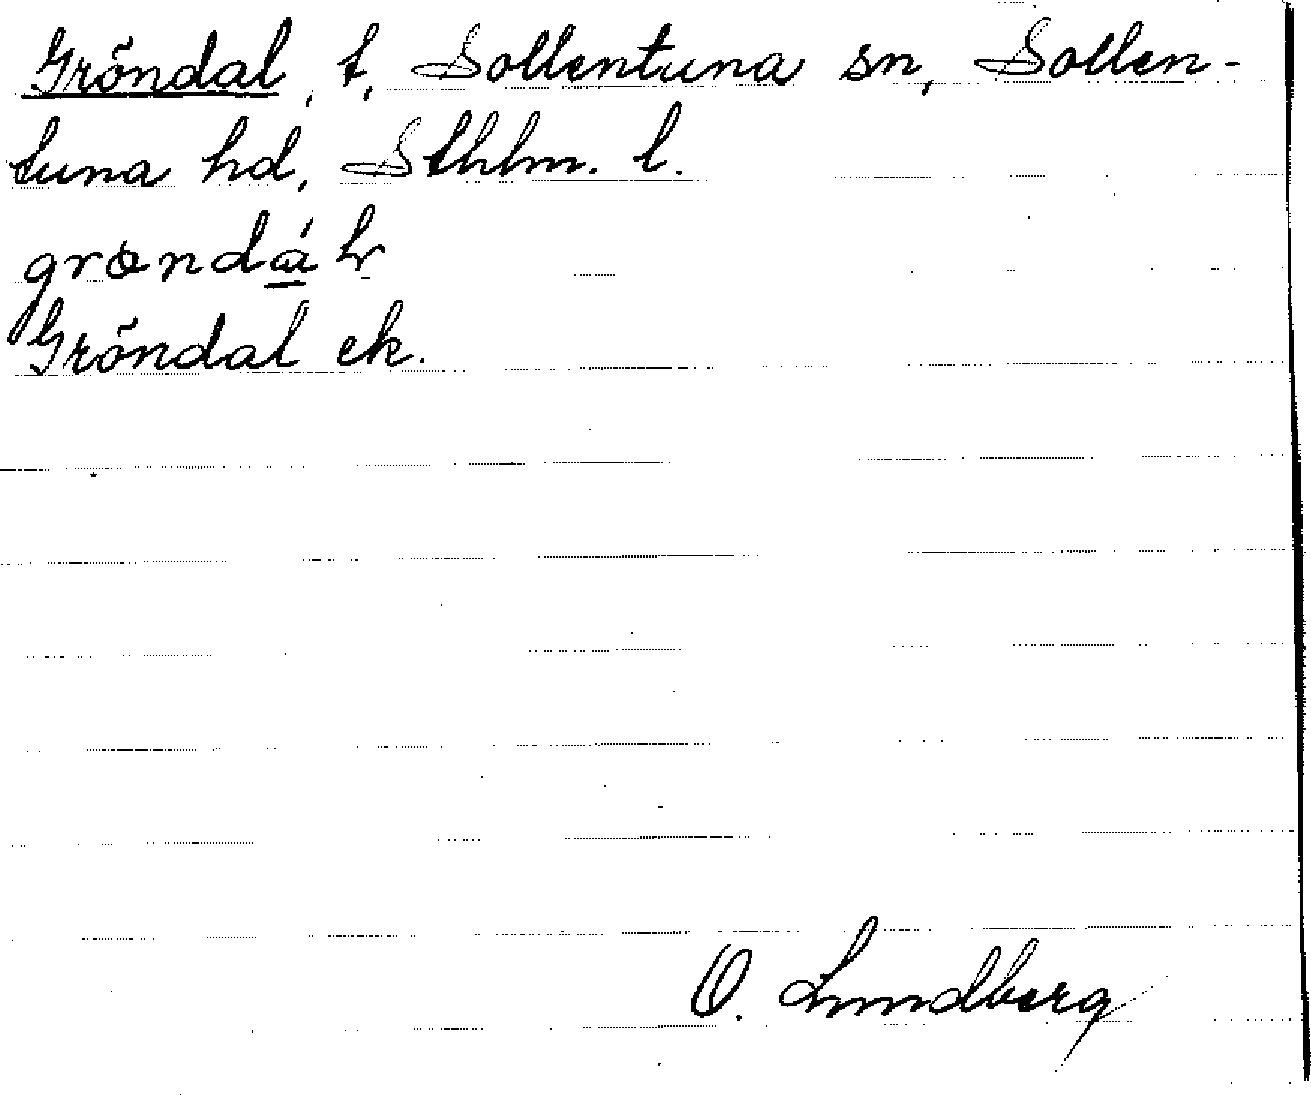 Gröndal, t, Sollentuna sn, Sollen-
tuna hd, Sthlm. l.
Gröndal ek.
O. Lundberg